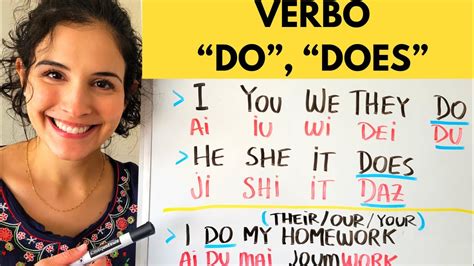 VERBO
“DO”, “DOES”
> I YOU WE THEY DO
Ai iU Wi DEi DU
> HE SHE IT DOES
Ji SHi iT DAZ
(THEIR/OUR/YOUR)
> I DO MY HOMEWORK
Ai DU MAi JOUMWORK